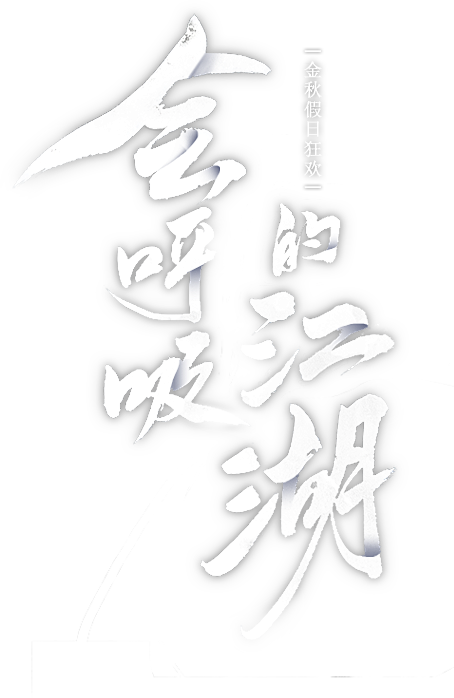 会呼吸
的江湖
金秋假日狂欢